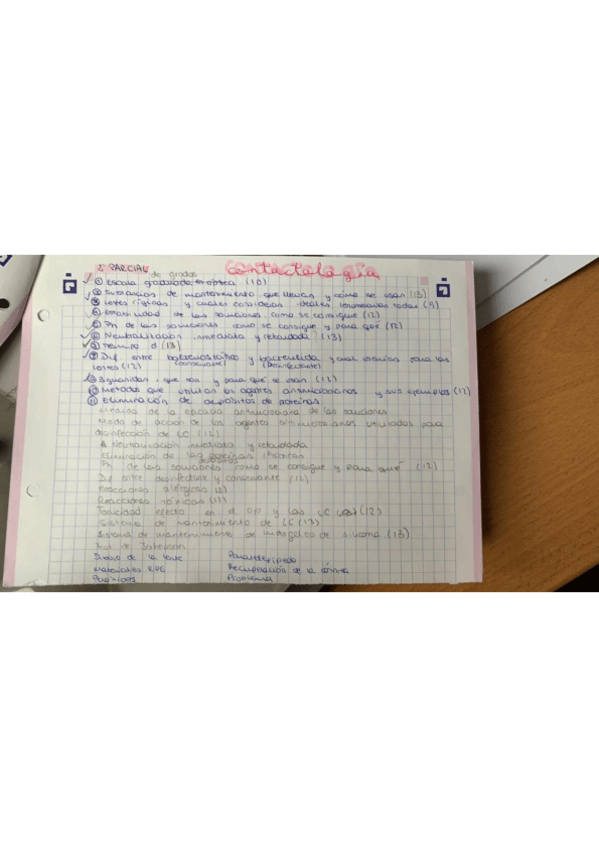 2º PARCIAL
Contactología
① Escala graduada de grados óptica (10)
② Sustancias de mantenimiento que llevan y como se usan (13)
③ Lentes rígidas y cuales consideras ideales (nombrarlas todas) (9)
④ Tonicidad de las soluciones como se consigue (12)
⑤ Ph de las soluciones como se consigue y para qué (12)
⑥ Neutralización inmediata y retardada (13)
⑦ Tiempo d (13)
⑧ Dif entre bacteriostático (conservante) y bactericida (desinfectante) y cual usarias para las
lentes (12)
⑨ Biguanidas, que son y para qué se usan (12)
⑩ Métodos que utilizan los agentes antimicrobianos y sus ejemplos (12)
⑪ Eliminación de depósitos de proteínas
Medida de la eficacia antimicrobiana de las soluciones
Modo de acción de los agentes antimicrobianos utilizados para
desinfección de LC (12)
Neutralización inmediata y retardada
Eliminación de las proteínas
Ph de las soluciones como se consigue y para qué (12)
Dif entre desinfectante y conservante (12)
Reacciones alérgicas
Reacciones tóxicas (13)
Toxicidad efecto en el ojo y las LC (12)
Sistema de mantenimiento de LC (13)
Sistema de mantenimiento de hidrogeles de silicona (13)
Test de
Dibujo de la lente
Materiales RPG
Recuperación de la córnea
Problema